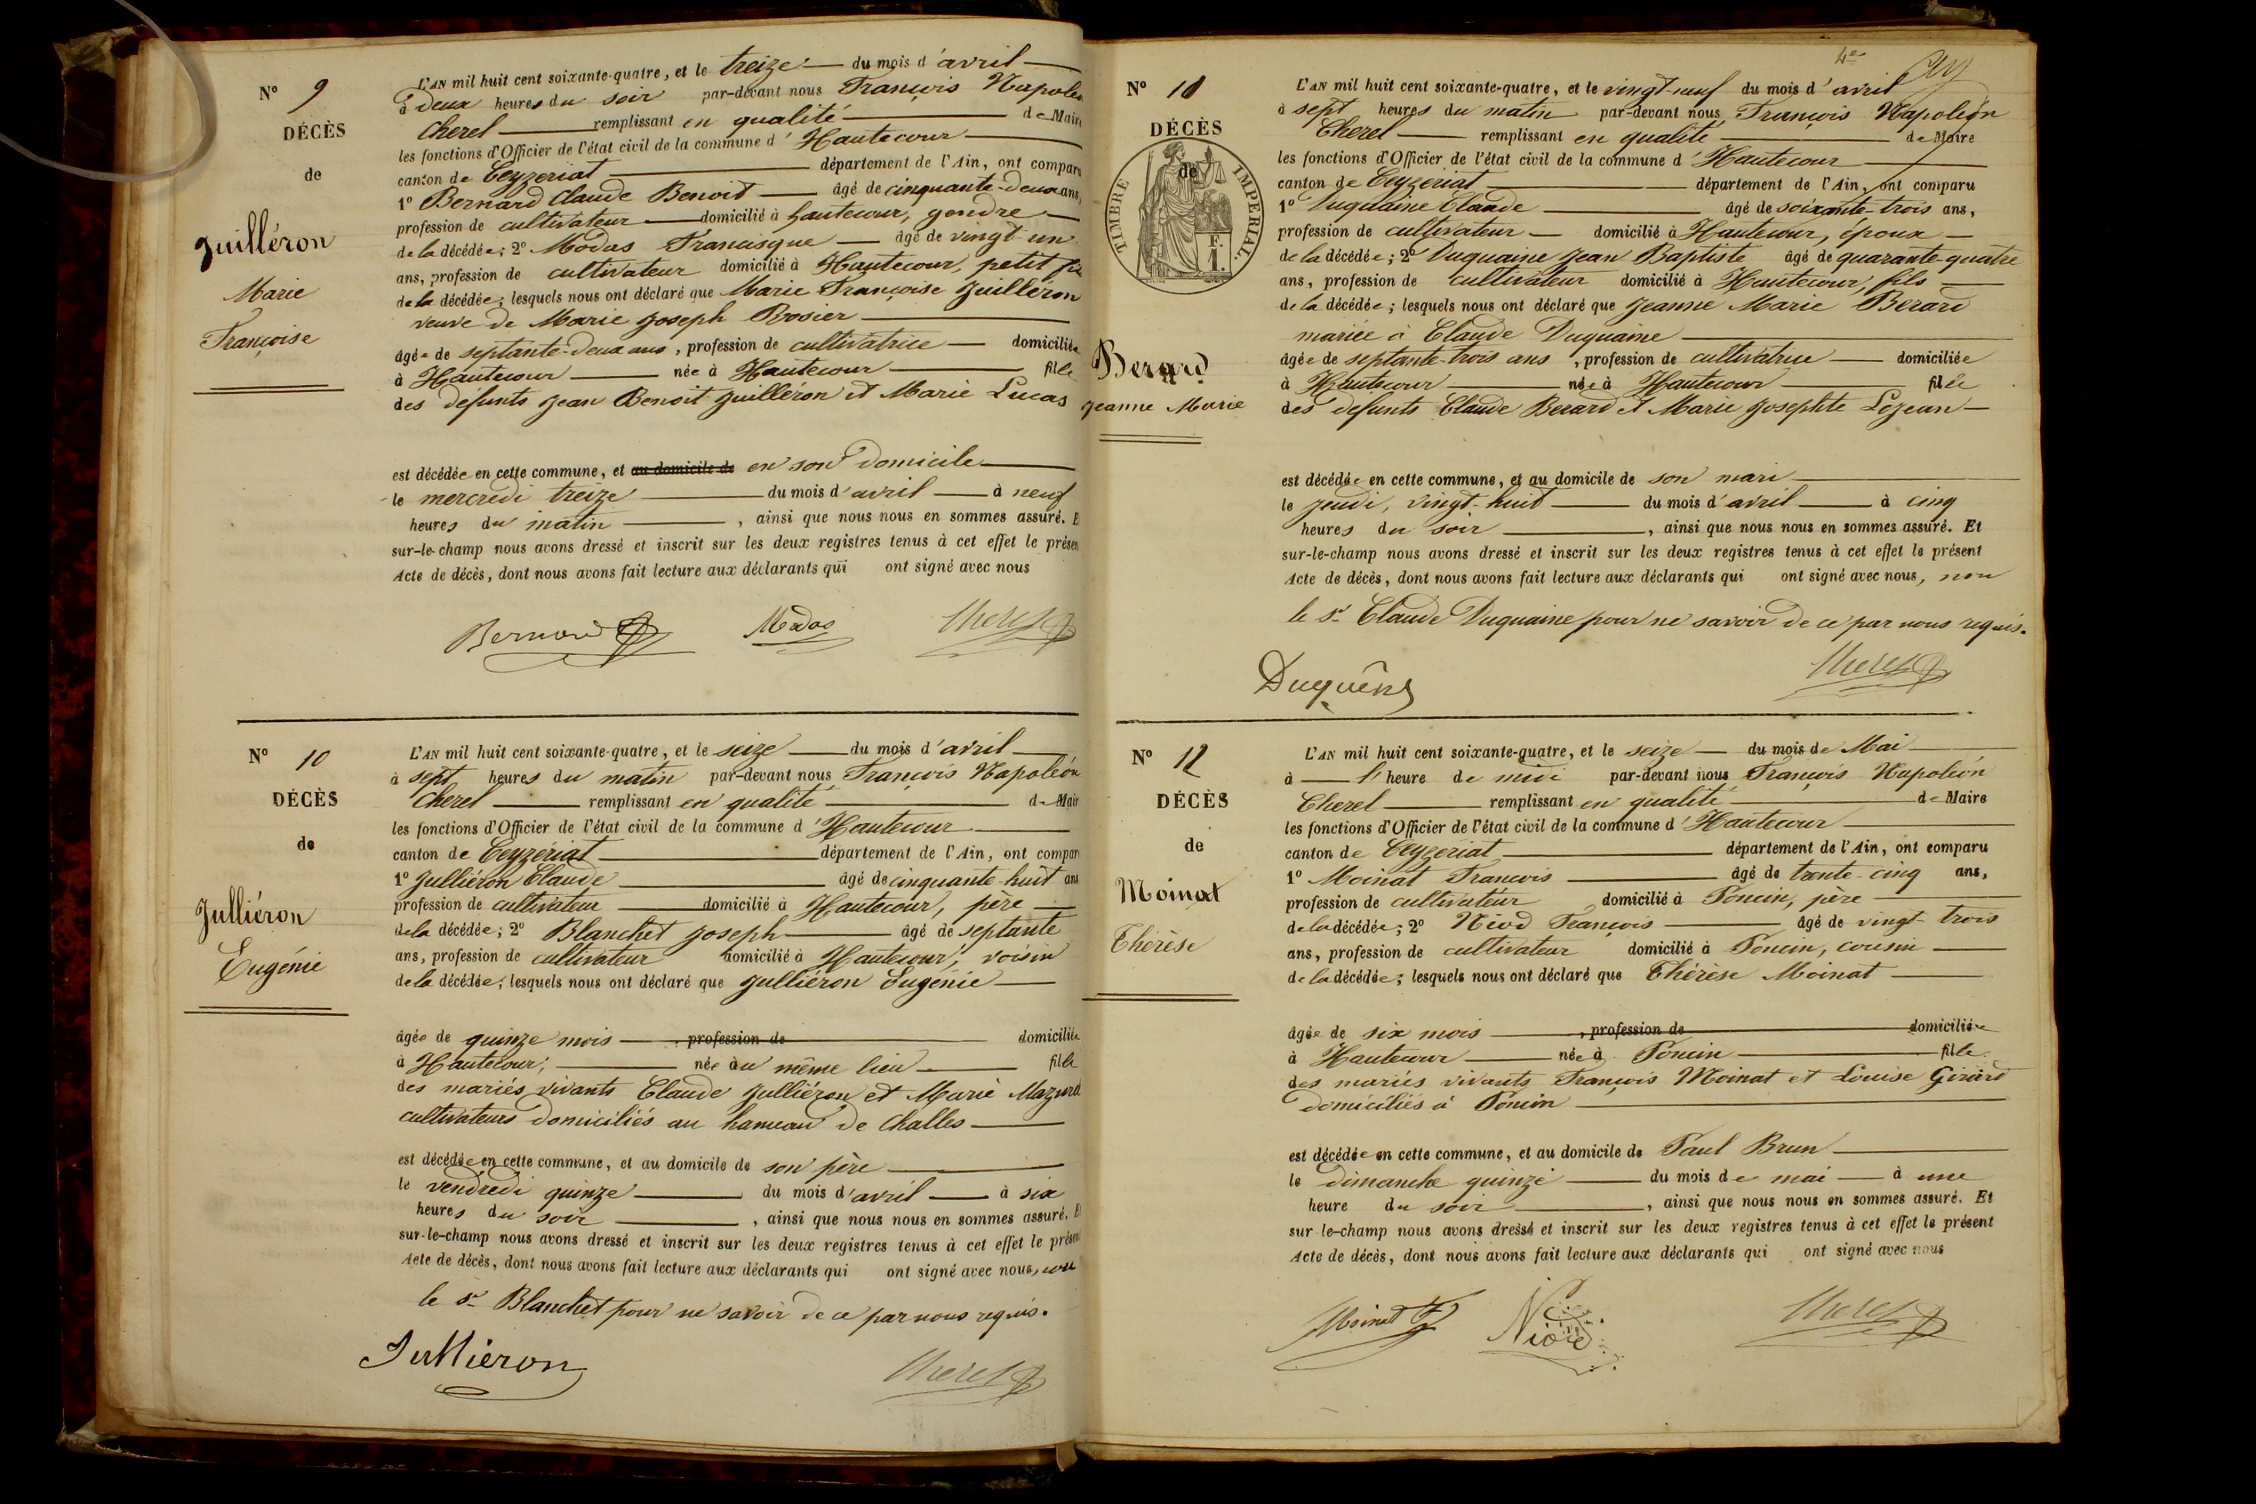 N° 9
DÉCÈS
de
Juilléron
Marie
Françoise
L'AN mil huit cent soixante-quatre, et le treize du mois d'avril
à deux heures du soir par-devant nous François Napoléo
Cherel remplissant en qualité de Maire
les fonctions d'Officier de l'état civil de la commune d'Hautecour
canton de Ceyzeriat département de l'Ain, ont comparu
1° Bernard Claude Benoit âgé de cinquante-deux ans,
profession de cultivateur domicilié à hautecour, gendre
de la décédée; 2° Modas Francisque âgé de vingt-un
ans, profession de cultivateur domicilié à Hautecour, petit fils
de la décédée; lesquels nous ont déclaré que Marie Françoise Juilléron
veuve de Marie Joseph Rosier
âgée de septante-deux ans, profession de cultivatrice domiciliée
à Hautecour née à Hautecour fille
des defunts Jean Benoit Juilléron et Marie Lucas
est décédée en cette commune, et au domicile de en son domicile
le mercredi treize du mois d'avril à neuf
heures du matin, ainsi que nous nous en sommes assuré. E
sur-le-champ nous avons dressé et inscrit sur les deux registres tenus à cet effet le présen
Acte de décès, dont nous avons fait lecture aux déclarants qui ont signé avec nous
Bernard Modas Cherel
N° 10
DÉCÈS
de
Julliéron
Eugénie
L'AN mil huit cent soixante-quatre, et le seize du mois d'avril
à sept heures du matin par-devant nous François Napoléon
Cherel remplissant en qualité de Mair
les fonctions d'Officier de l'état civil de la commune d'Hautecour
canton de Ceyzériat département de l'Ain, ont compar
1° Julliéron Claude âgé de cinquante-huit ans
profession de cultivateur domicilié à Hautecour, père
de la décédée; 2° Blanchet Joseph âgé de septante
ans, profession de cultivateur domicilié à Hautecour, voisin
de la décédée; lesquels nous ont déclaré que Julliéron Eugénie
âgée de quinze mois, profession de domiciliée
à Hautecour, née au même lieu fille
des mariés vivants Claude Julliéron et Marie
cultivateurs domiciliés au hameau de Challes
est décédée en cette commune, et au domicile de son père
le vendredi quinze du mois d'avril à six
heures du soir, ainsi que nous nous en sommes assuré. E
sur-le-champ nous avons dressé et inscrit sur les deux registres tenus à cet effet le présen
Acte de décès, dont nous avons fait lecture aux déclarants qui ont signé avec nous, non
le Sr Blanchet pour ne savoir de ce par nous requis.
Julliéron Cherel
4e
N° 11
DÉCÈS
de
TIMBRE IMPERIAL
F.
1.
Berard
Jeanne Marie
L'AN mil huit cent soixante-quatre, et le vingt-neuf du mois d'avril
à sept heures du matin par-devant nous François Napoléon
Cherel remplissant en qualité de Maire
les fonctions d'Officier de l'état civil de la commune d'Hautecour
canton de Ceyzeriat département de l'Ain, ont comparu
1° Duquaine Claude âgé de soixante-trois ans,
profession de cultivateur domicilié à Hautecour, époux
de la décédée; 2° Duquaine Jean Baptiste âgé de quarante-quatre
ans, profession de cultivateur domicilié à Hautecour, fils
de la décédée; lesquels nous ont déclaré que Jeanne Marie Berard
mariée à Claude Duquaine
âgée de septante-trois ans, profession de cultivatrice domiciliée
à Hautecour née à Hautecour fille
des defunts Claude Berard et Marie Josephte Lozean
est décédée en cette commune, et au domicile de son mari
le jeudi, vingt-huit du mois d'avril à cinq
heures du soir, ainsi que nous nous en sommes assuré. Et
sur-le-champ nous avons dressé et inscrit sur les deux registres tenus à cet effet le présent
Acte de décès, dont nous avons fait lecture aux déclarants qui ont signé avec nous, non
le Sr Claude Duquaine pour ne savoir de ce par nous requis.
Duquêne Cherel
N° 12
DÉCÈS
de
Moinat
Thérèse
L'AN mil huit cent soixante-quatre, et le seize du mois de Mai
à l'heure de midi par-devant nous François Napoléon
Cherel remplissant en qualité de Maire
les fonctions d'Officier de l'état civil de la commune d'Hautecour
canton de Ceyzeriat département de l'Ain, ont comparu
1° Moinat François âgé de trente-cinq ans,
profession de cultivateur domicilié à Poncin, père
de la décédée; 2° Niod François âgé de vingt-trois
ans, profession de cultivateur domicilié à Poncin, cousin
de la décédée; lesquels nous ont déclaré que Thérèse Moinat
âgée de six mois, profession de domiciliée
à Hautecour née à Poncin fille
des mariés vivants François Moinat et Louise Girard
domiciliés à Poncin
est décédée en cette commune, et au domicile de Paul Brun
le dimanche quinze du mois de mai à une
heure du soir, ainsi que nous nous en sommes assuré. Et
sur-le-champ nous avons dressé et inscrit sur les deux registres tenus à cet effet le présent
Acte de décès, dont nous avons fait lecture aux déclarants qui ont signé avec nous
Moinat F Niod Cherel